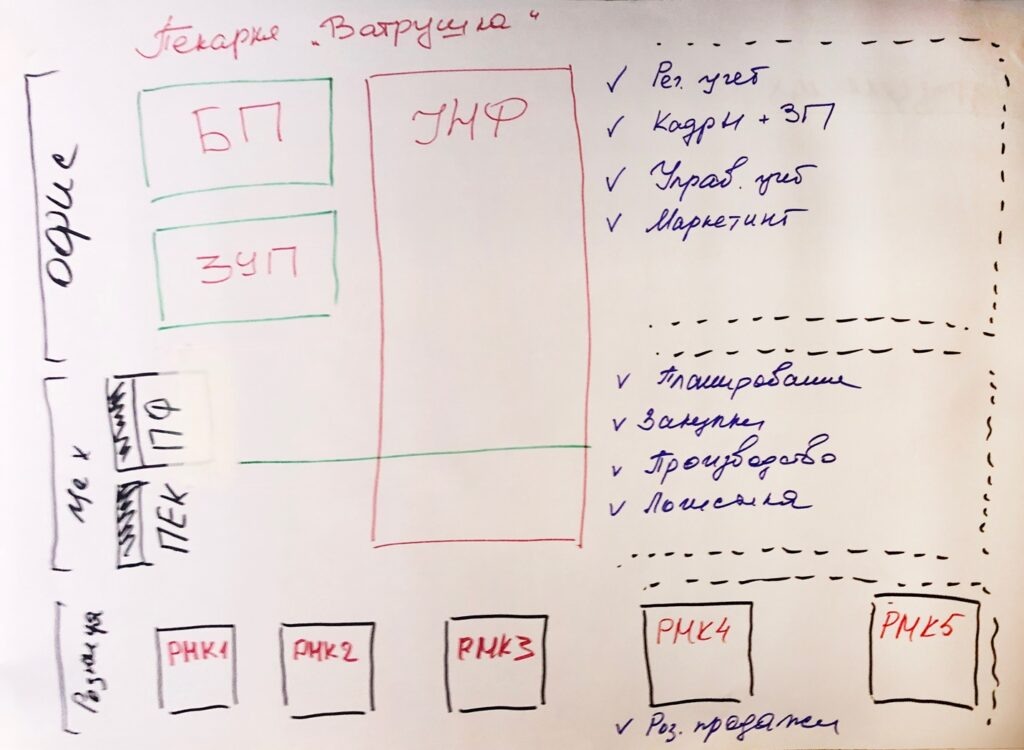 Пекарня „Ватрушка“
Офис
БП
УНФ
ЗУП
✓ Рег. учет
✓ Кадры + ЗП
✓ Управ. учет
✓ Маркетинг
Цех
ПФ
ПЕК
✓ Планирование
✓ Закупки
✓ Производство
✓ Логистика
Розница
РМК1
РМК2
РМК3
РМК4
РМК5
✓ Роз. продажи